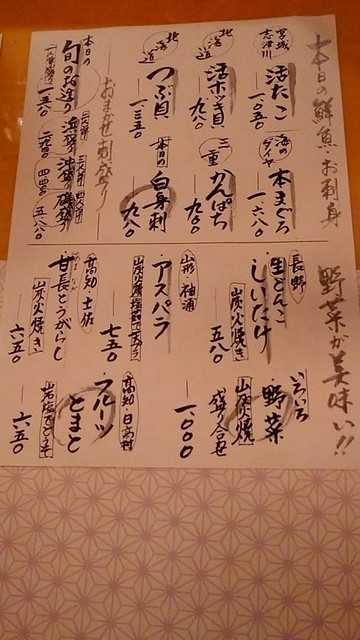 本日の鮮魚お刺身
宮城
志津川
活たこ
一〇五〇
海のダイヤ
本まぐろ
一六八〇
北海道
活ホッキ貝
九八〇
三重
かんぱち
九八〇
北海道
つぶ貝
一二三〇
本日の
白身刺
九八〇
本日の
おまかせ刺盛り
旬のお造り
一人前盛り
一五八〇
浜盛り
二九四〇
沖盛り
四四〇〇
磯盛り
五八八〇
野菜が美味い!!
長野
生どんこ
しいたけ
炭火焼き
五八〇
いろいろ
野菜
炭火焼
盛り合せ
一、〇〇〇
山形
アスパラ
七五〇
高知・土佐
甘長とうがらし
炭火焼き
六五〇
高知・日高村
フルーツ
とまと
岩塩でどうぞ
六五〇